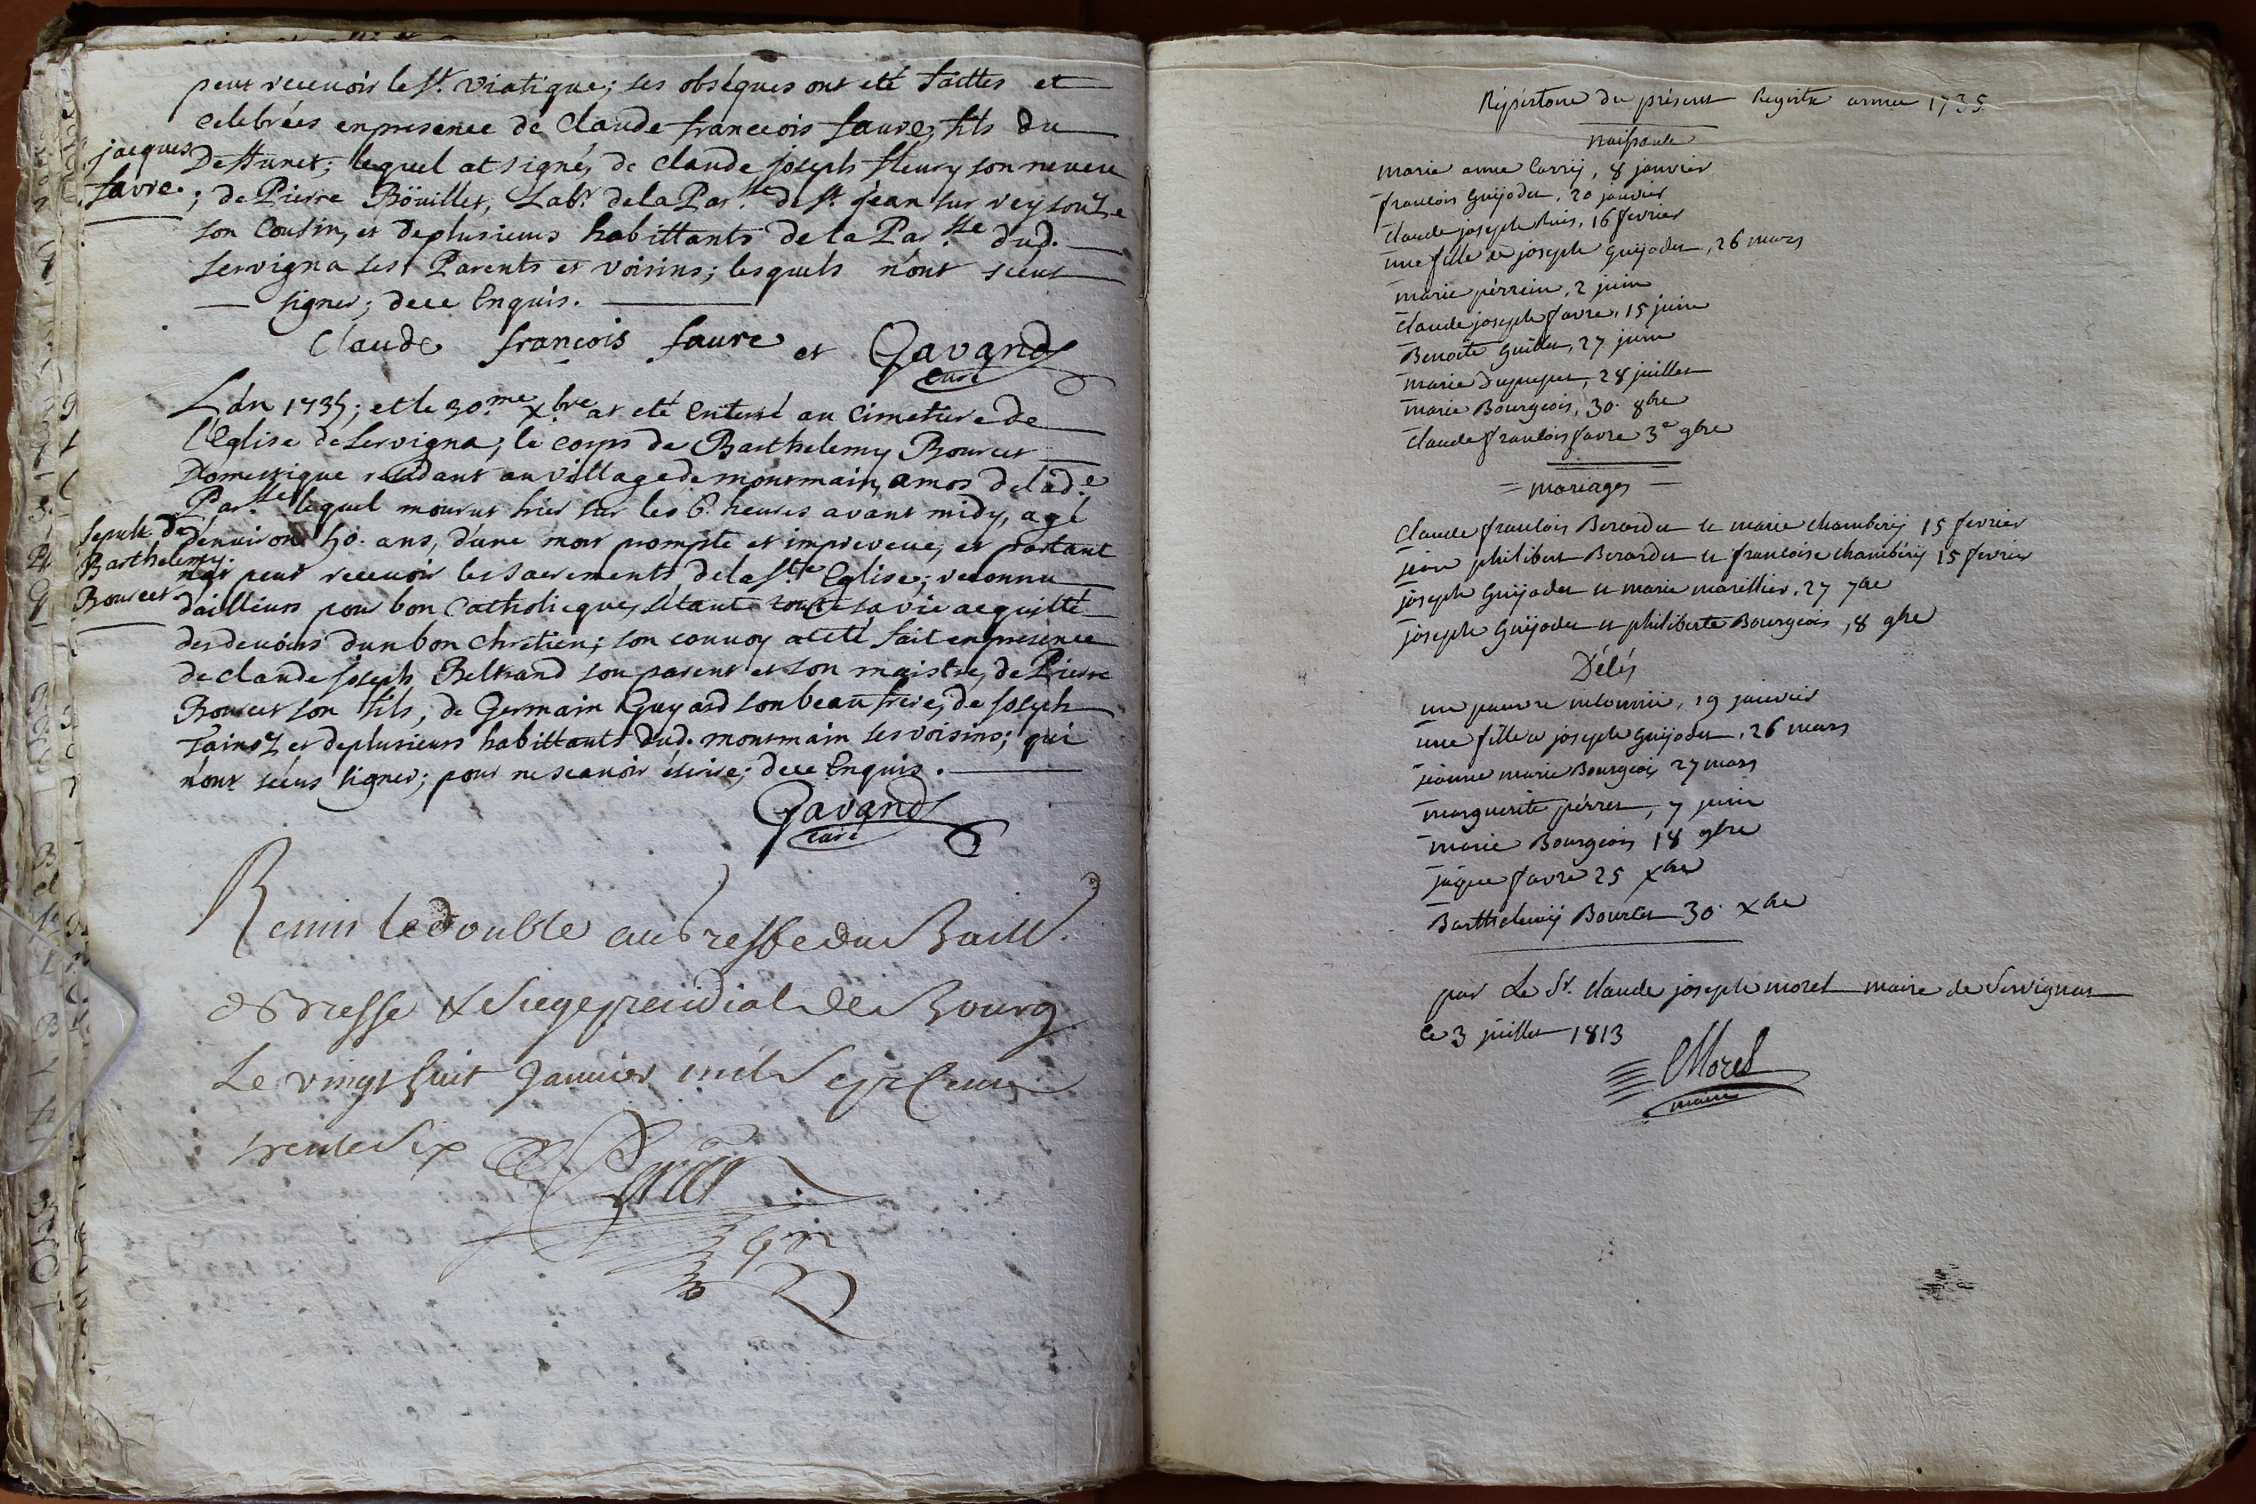 peut recevoir le st. viatique; ses obséques ont eté faittes et
celebrées en presence de Claude francois faure, fils du
jacques
favre.
deffunct; lequel at signé, de Claude joseph fleury son neveu
; de Pierre Böuillet, Labr. de la Par.sse de st. jean sur veysouze
son Cousin, et de plusieurs habittants de la Par.sse dud.
servigna ses Parents et voisins; lesquels n'ont sceus
signer; de ce Enquis.
Claude francois faure et Gavand
Curé
L'an 1735; et le 30.me xbre at eté Enterré au Cimetiere de
l'Eglise de Servigna; le corps de Barthelemy Bourcet
Domestique residant au village de montmain, amos de lad.e
Par.sse lequel mourut hier sur les 6. heures avant midy, agé
Sepult. de
Barthelemy
Bourcet
d'environ 50. ans, d'une mort prompte et impreveue; et partant
n'at peut recevoir les sacrements de la s.te Eglise; reconnu
d'ailleurs pour bon Catholicque, s'étant toute sa vie acquitté
des devoirs d'un bon chretien; son convoy at eté fait en presence
de Claude joseph Beltrand son parent et son maistre, de Pierre
Bourcet son fils, de Germain Guyard son beaufrere, de joseph
et de plusieurs habittants dud. montmain ses voisins; qui
n'ont sceus signer; pour ne scavoir écrire; de ce Enquis.
Gavand
Curé
Remis le double au Greffe du Baill.
de Bresse & Siege presidial de Bourg
Le vingt huit Janvier mil Sept Cent
trente Six
Répertoire du présent Registre année 1735
naissance
marie anne Carrij, 8 janvier
francois Guijodet, 20 janvier
Claude joseph , 16 fevrier
une fille a joseph Guijodet, 26 mars
marie pérrein, 2 juin
Claude joseph favre, 15 juin
Benoite Guillet, 27 juin
marie dupupet, 28 juillet
marie Bourgeois, 30. 8bre
Claude francois favre 3e 9bre
= mariages =
Claude francois Berardet et marie chambérij 15 fevrier
jean philibert Berardet et francoise chambérij 15 fevrier
joseph Guijodet et marie marillier, 27 7bre
joseph Guijodet et philiberte Bourgeois, 8 9bre
Décés
un pauvre inconnu, 19 janvier
une fille a joseph Guijodet, 26 mars
jéanne marie Bourgeois 27 mars
marguerite pérret, 7 juin
marie Bourgeois 18 9bre
jaque favre 25 xbre
Barthelemij Bourcet 30. xbre
par Le Sr. Claude joseph morel maire de Servignat
ce 3 juillet 1813
Morel
maire